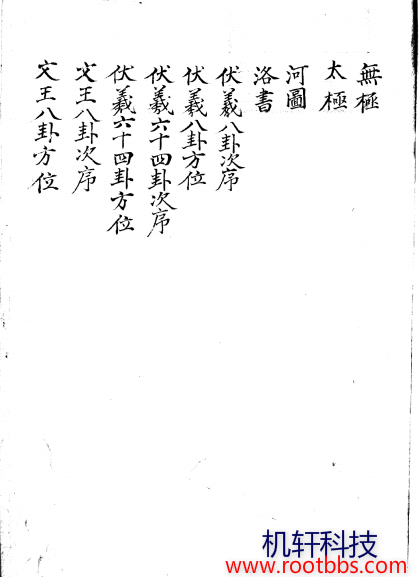 無極
太極
河圖
洛書
伏羲八卦次序
伏羲八卦方位
伏羲六十四卦次序
伏羲六十四卦方位
文王八卦次序
文王八卦方位
机轩科技
www.rootbbs.com